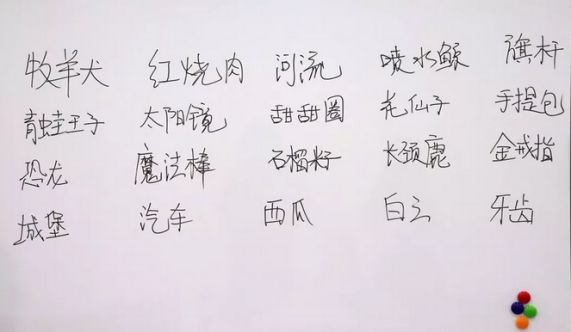 牧羊犬 红烧肉 河流 喷水鲸 旗杆
青蛙王子 太阳镜 甜甜圈 毛仙子 手提包
恐龙 魔法棒 石榴籽 长颈鹿 金戒指
城堡 汽车 西瓜 白云 牙齿